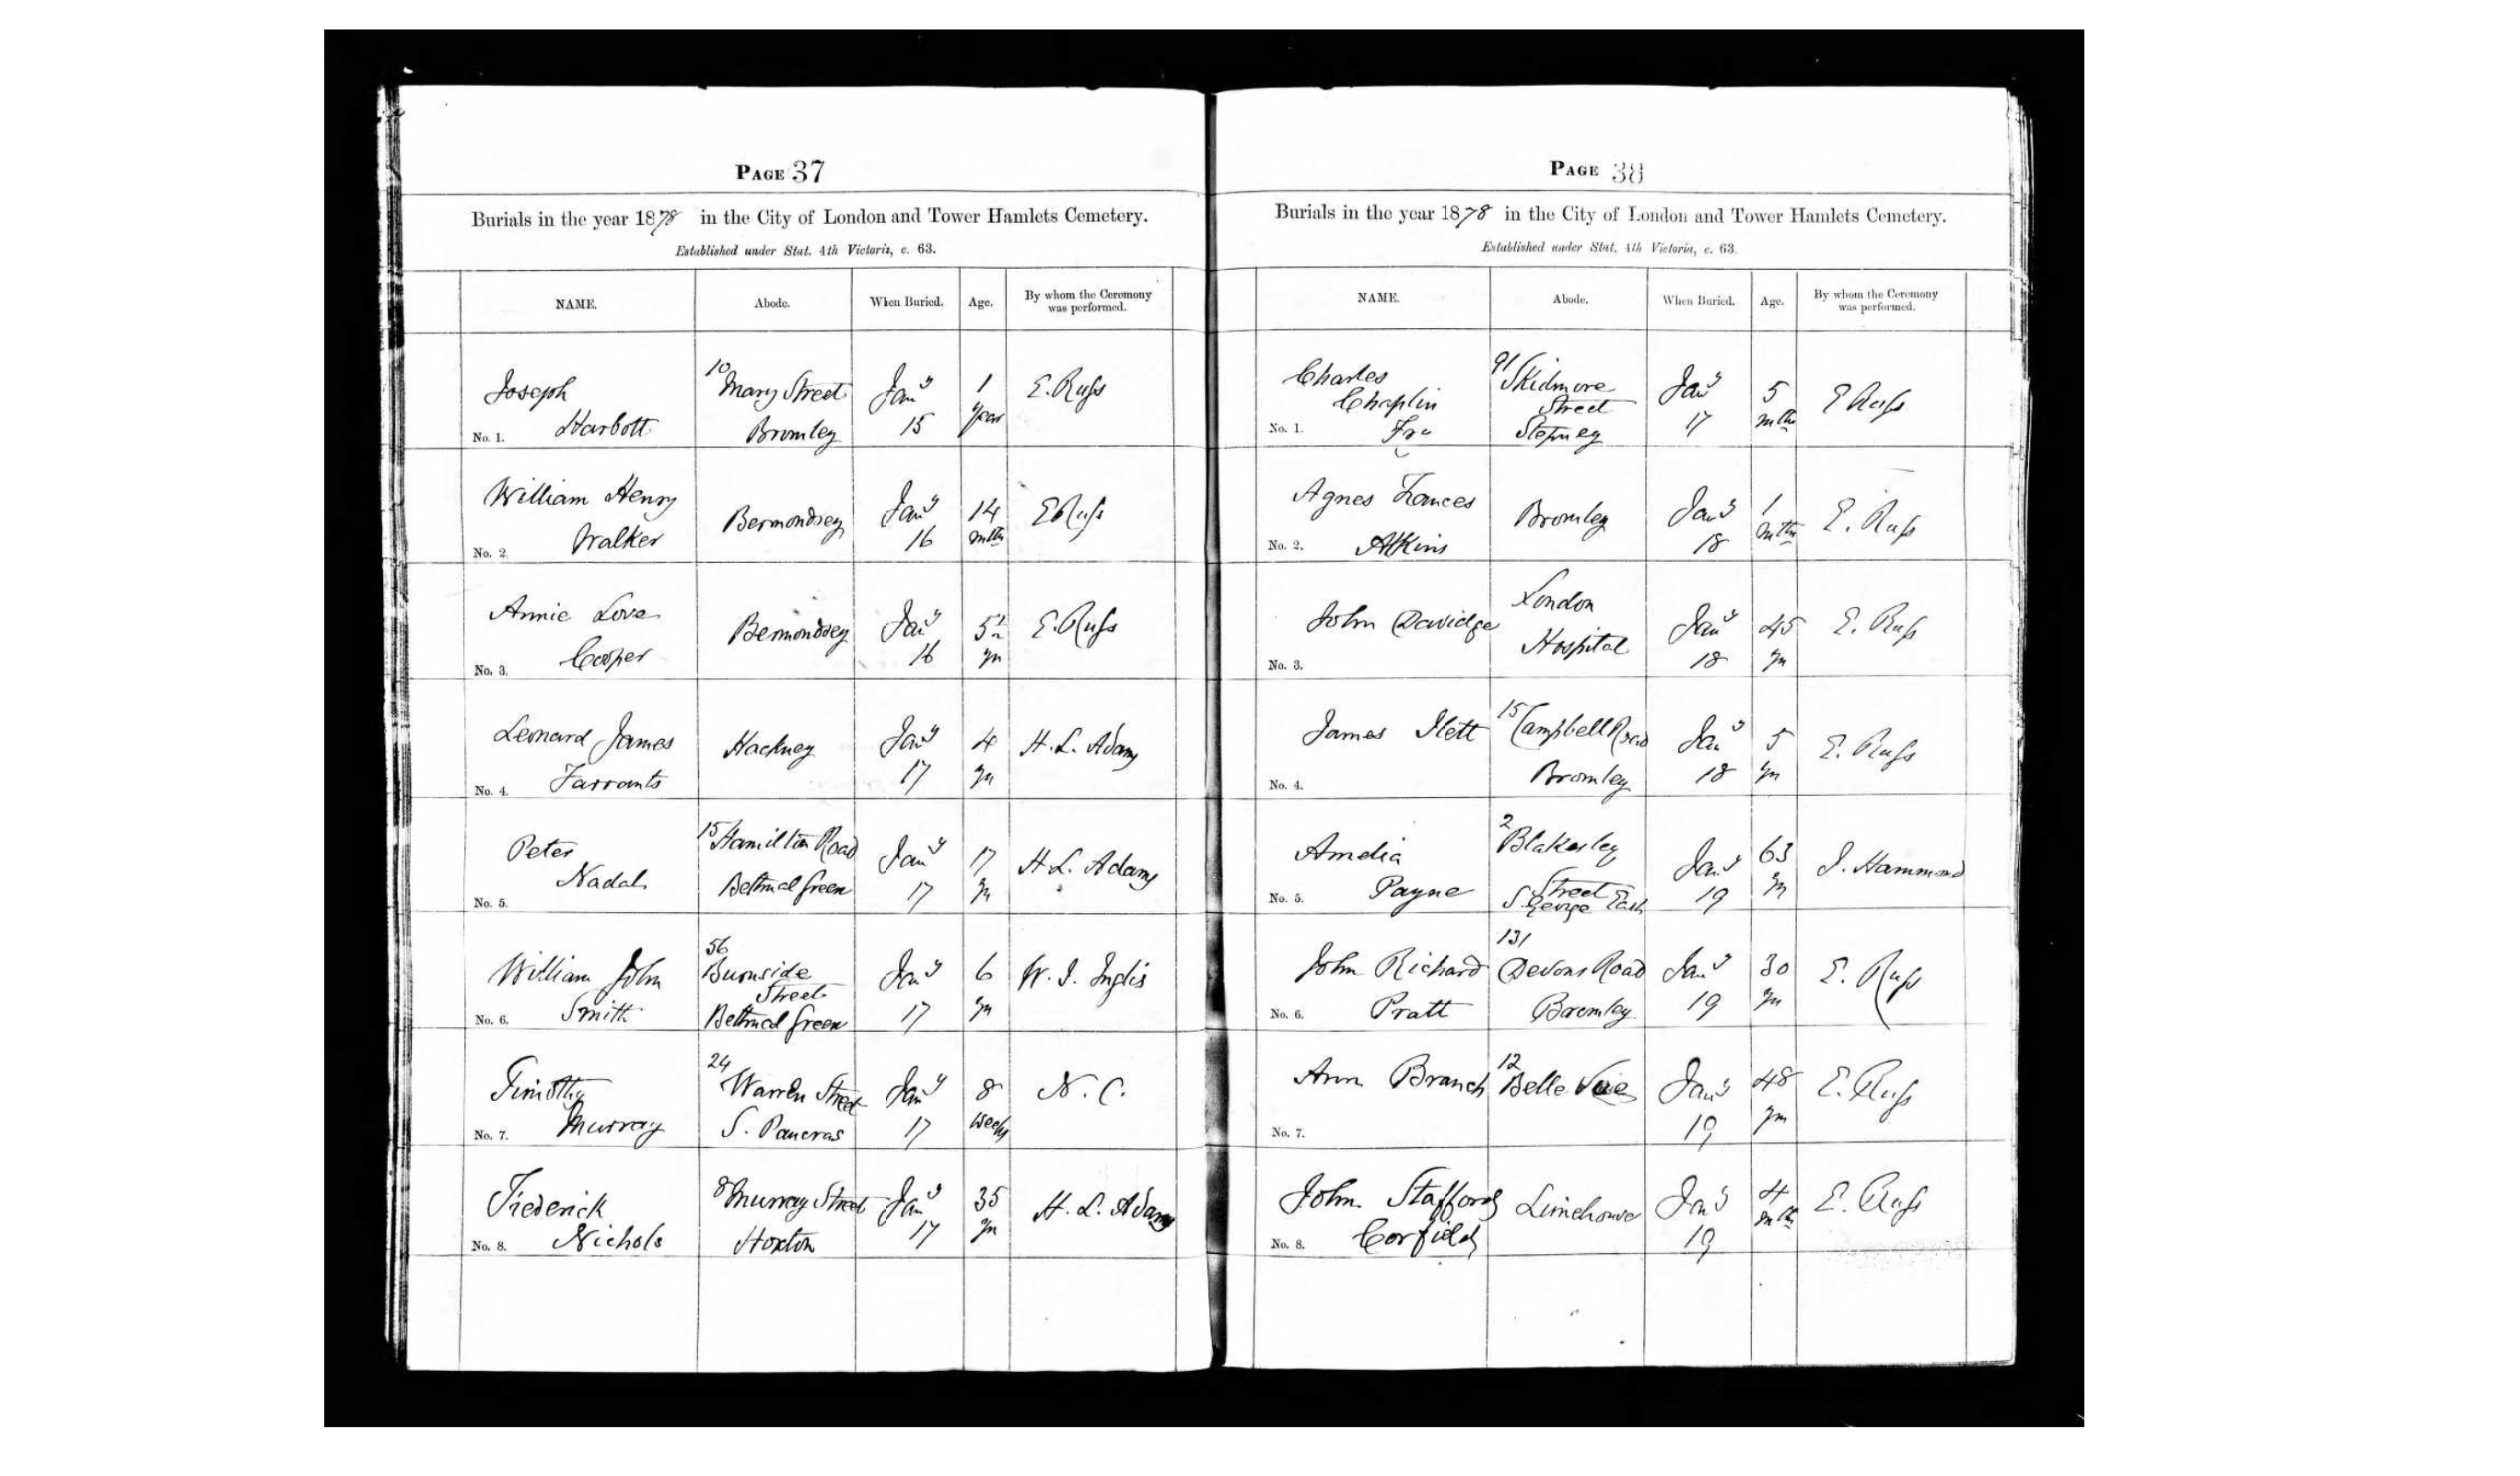 PAGE 37
Burials in the year 1878 in the City of London and Tower Hamlets Cemetery.
Established under Stat. 4th Victoria, c. 63.
NAME. Abode. When Buried. Age. By whom the Ceremony was performed.
No. 1. Joseph Harbott 10 Mary Street Bromley Jany 15 1 year E. Russ
No. 2. William Henry Walker Bermondsey Jany 16 14 mths E Russ
No. 3. Annie Love Cooper Bermondsey Jany 16 yrs E. Russ
No. 4. Leonard James Farrants Hackney Jany 17 4 yrs H. L. Adams
No. 5. Peter Nadal 15 Hamilton Road Bethnal Green Jany 17 17 yrs H. L. Adams
No. 6. William John Smith 56 Burnside Street Bethnal Green Jany 17 6 yrs W. J. Inglis
No. 7. Timothy Murray 24 Warren Street S. Pancras Jany 17 8 weeks N. C.
No. 8. Frederick Nichols 8 Murray Street Hoxton Jany 17 35 yrs H. L. Adams
PAGE 38
Burials in the year 1878 in the City of London and Tower Hamlets Cemetery.
Established under Stat. 4th Victoria, c. 63.
NAME. Abode. When Buried. Age. By whom the Ceremony was performed.
No. 1. Charles Chaplin 91 Skidmore Street Stepney Jany 17 5 mths E Russ
No. 2. Agnes Frances Atkins Bromley Jany 18 1 mth E. Russ
No. 3. John Davidge London Hospital Jany 18 45 yrs E. Russ
No. 4. James Ilett 15 Campbell Road Bromley Jany 18 5 yrs E. Russ
No. 5. Amelia Payne 2 Blakesley Street S. George East Jany 19 63 yrs J. Hammond
No. 6. John Richard Pratt 131 Devons Road Bromley Jany 19 30 yrs E. Russ
No. 7. Ann Branch 12 Belle Vue Jany 19 48 yrs E. Russ
No. 8. John Stafford Corfield Limehouse Jany 19 4 mths E. Russ